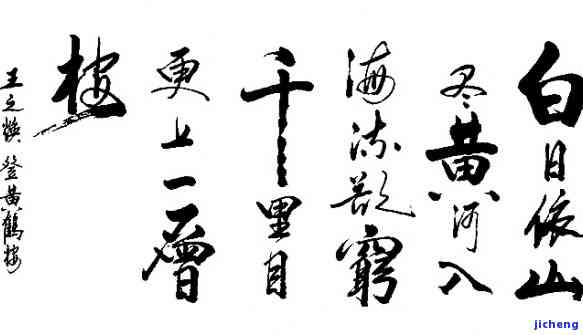 白日依山
尽黄河入
海流欲窮
千里目
更上一層
樓
王之焕登黄鶴樓
jicheng